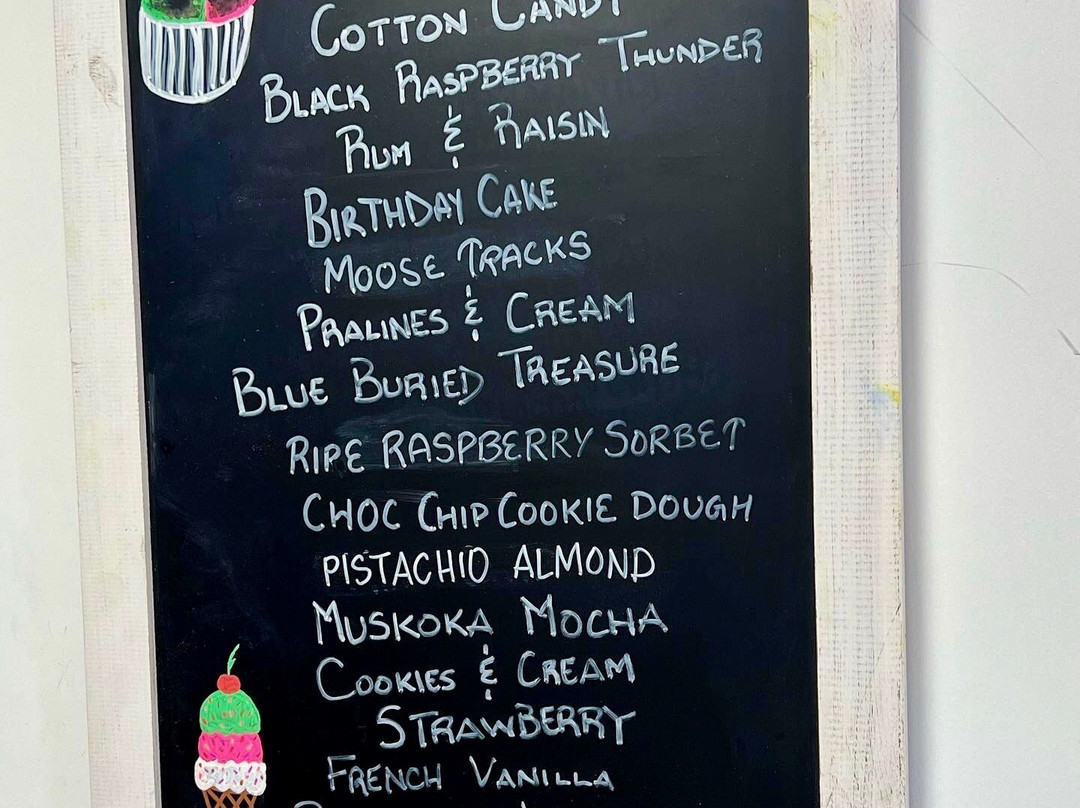 COTTON CANDY
BLACK RASPBERRY THUNDER
RUM & RAISIN
BIRTHDAY CAKE
MOOSE TRACKS
PRALINES & CREAM
BLUE BURIED TREASURE
RIPE RASPBERRY SORBET
CHOC CHIP COOKIE DOUGH
PISTACHIO ALMOND
MUSKOKA MOCHA
COOKIES & CREAM
STRAWBERRY
FRENCH VANILLA